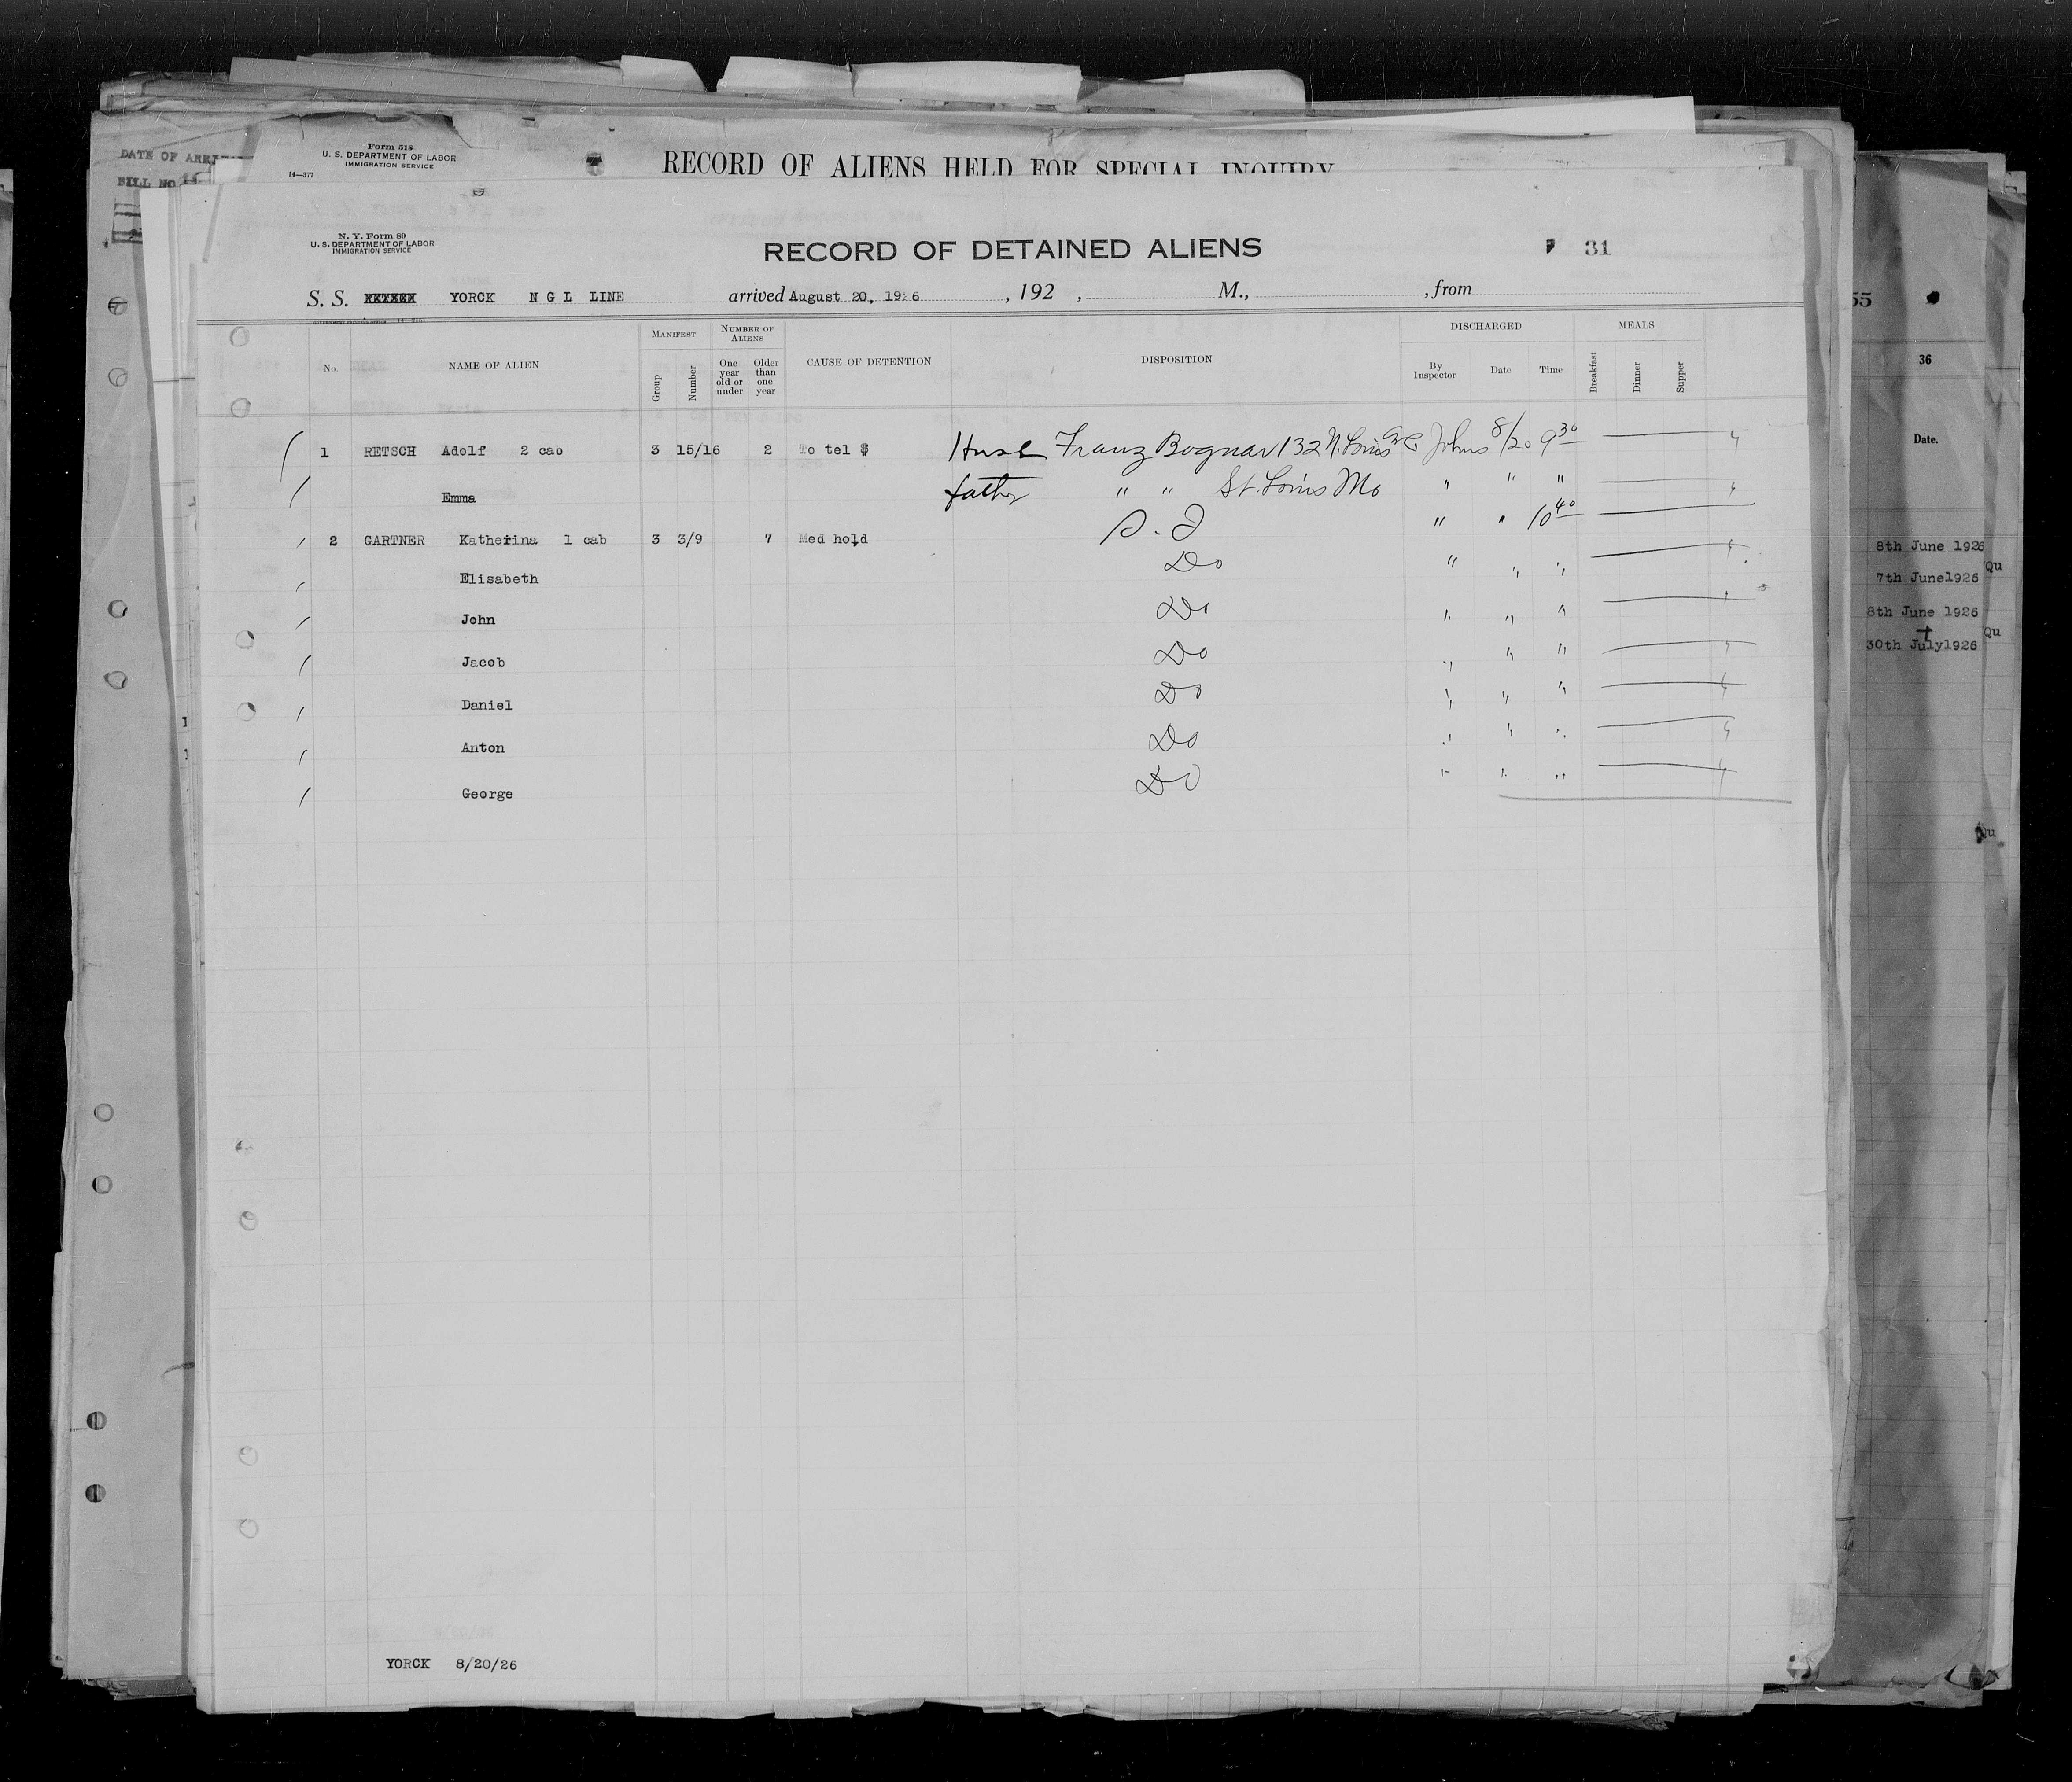 DATE OF
BILL NO
Form 518
U. S. DEPARTMENT OF LABOR
IMMIGRATION SERVICE
14—377
RECORD OF ALIENS HELD FOR SPECIAL INQUIRY
N. Y. Form 89
U. S. DEPARTMENT OF LABOR
IMMIGRATION SERVICE
RECORD OF DETAINED ALIENS
31
S. S. YORCK N G L LINE arrived August 20, 1926, 192 , M., , from
No. NAME OF ALIEN MANIFEST Group Number NUMBER OF ALIENS One year old or under Older than one year CAUSE OF DETENTION DISPOSITION DISCHARGED By Inspector Date Time MEALS Breakfast Dinner Supper
1 RETSCH Adolf 2 cab 3 15/16 2 To tel $ Franz Bognar 132 N. Johns 8/20 9 30
Emma father " " St. Louis Mo " " "
2 GARTNER Katherina 1 cab 3 3/9 7 Med hold " " 10 40
Elisabeth Do " " "
John Do " " "
Jacob Do " " "
Daniel Do " " "
Anton Do " " "
George Do " " "
YORCK 8/20/26
55
36
Date.
8th June 1926
Qu
7th June1926
8th June 1926
Qu
30th July1926
Qu